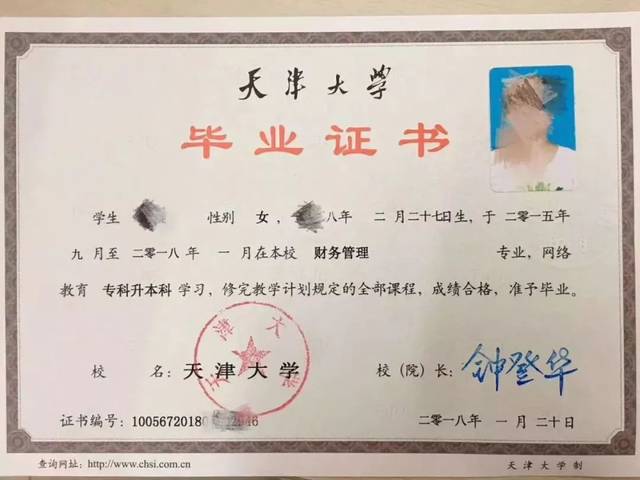 天津大学
毕业证书
学生 性别 女, 八年 二月二十七日生,于 二〇一五年
九月至 二〇一八年 一月在本校 财务管理 专业,网络
教育 专科升本科 学习,修完教学计划规定的全部课程,成绩合格,准予毕业。
校 名:天津大学 校(院)长:钟登华
天津大学
证书编号:1005672018 二〇一八年 一月二十日
查询网址:http://www.chsi.com.cn 天津大学制